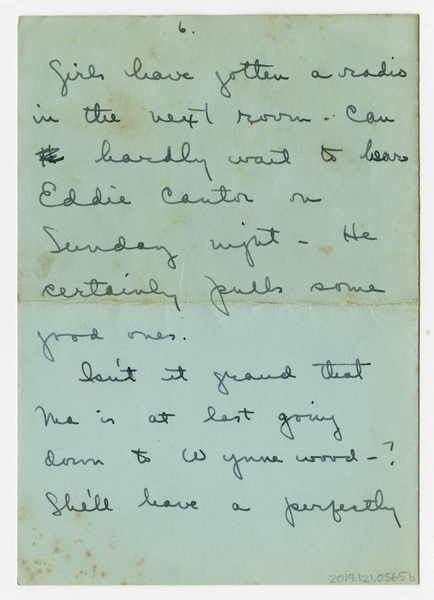 6.
Girls have gotten a radio
in the next room - Can
hardly wait to hear
Eddie Cantor on
Sunday night - He
certainly pulls some
good ones.
Isn't it grand that
Ma is at last going
down to Wynnewood - ?
She'll have a perfectly
2019.121.0565b